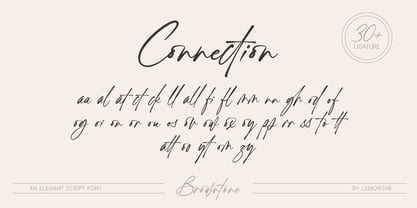 Connection
30+
LIGATURE
aa al at ct ck ll all fi fl mm nn gh od of
og oi on or ou os ov ow ox oy pp rr ss to tt
att oo yt om zy
AN ELEGANT SCRIPT FONT
Browntone
BY LEMONTHE